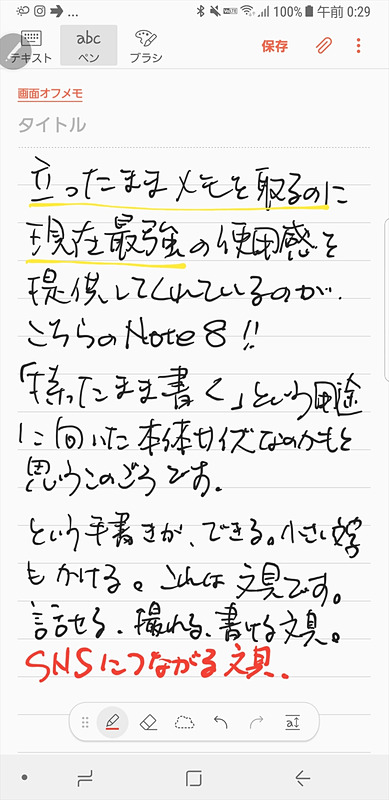 100% 午前 0:29
テキスト abc ペン ブラシ 保存
画面オフメモ
タイトル
立ったままメモを取るのに
現在最強の使用感を
提供してくれているのが、
こちらのNote8!!
「持ったまま書く」という用途
に向いた本体サイズなのかもと
思うこのごろです。
という手書きが、できる。小さい文字
もかける。これは文具です。
話せる、撮れる、書ける文具。
SNSにつながる文具。